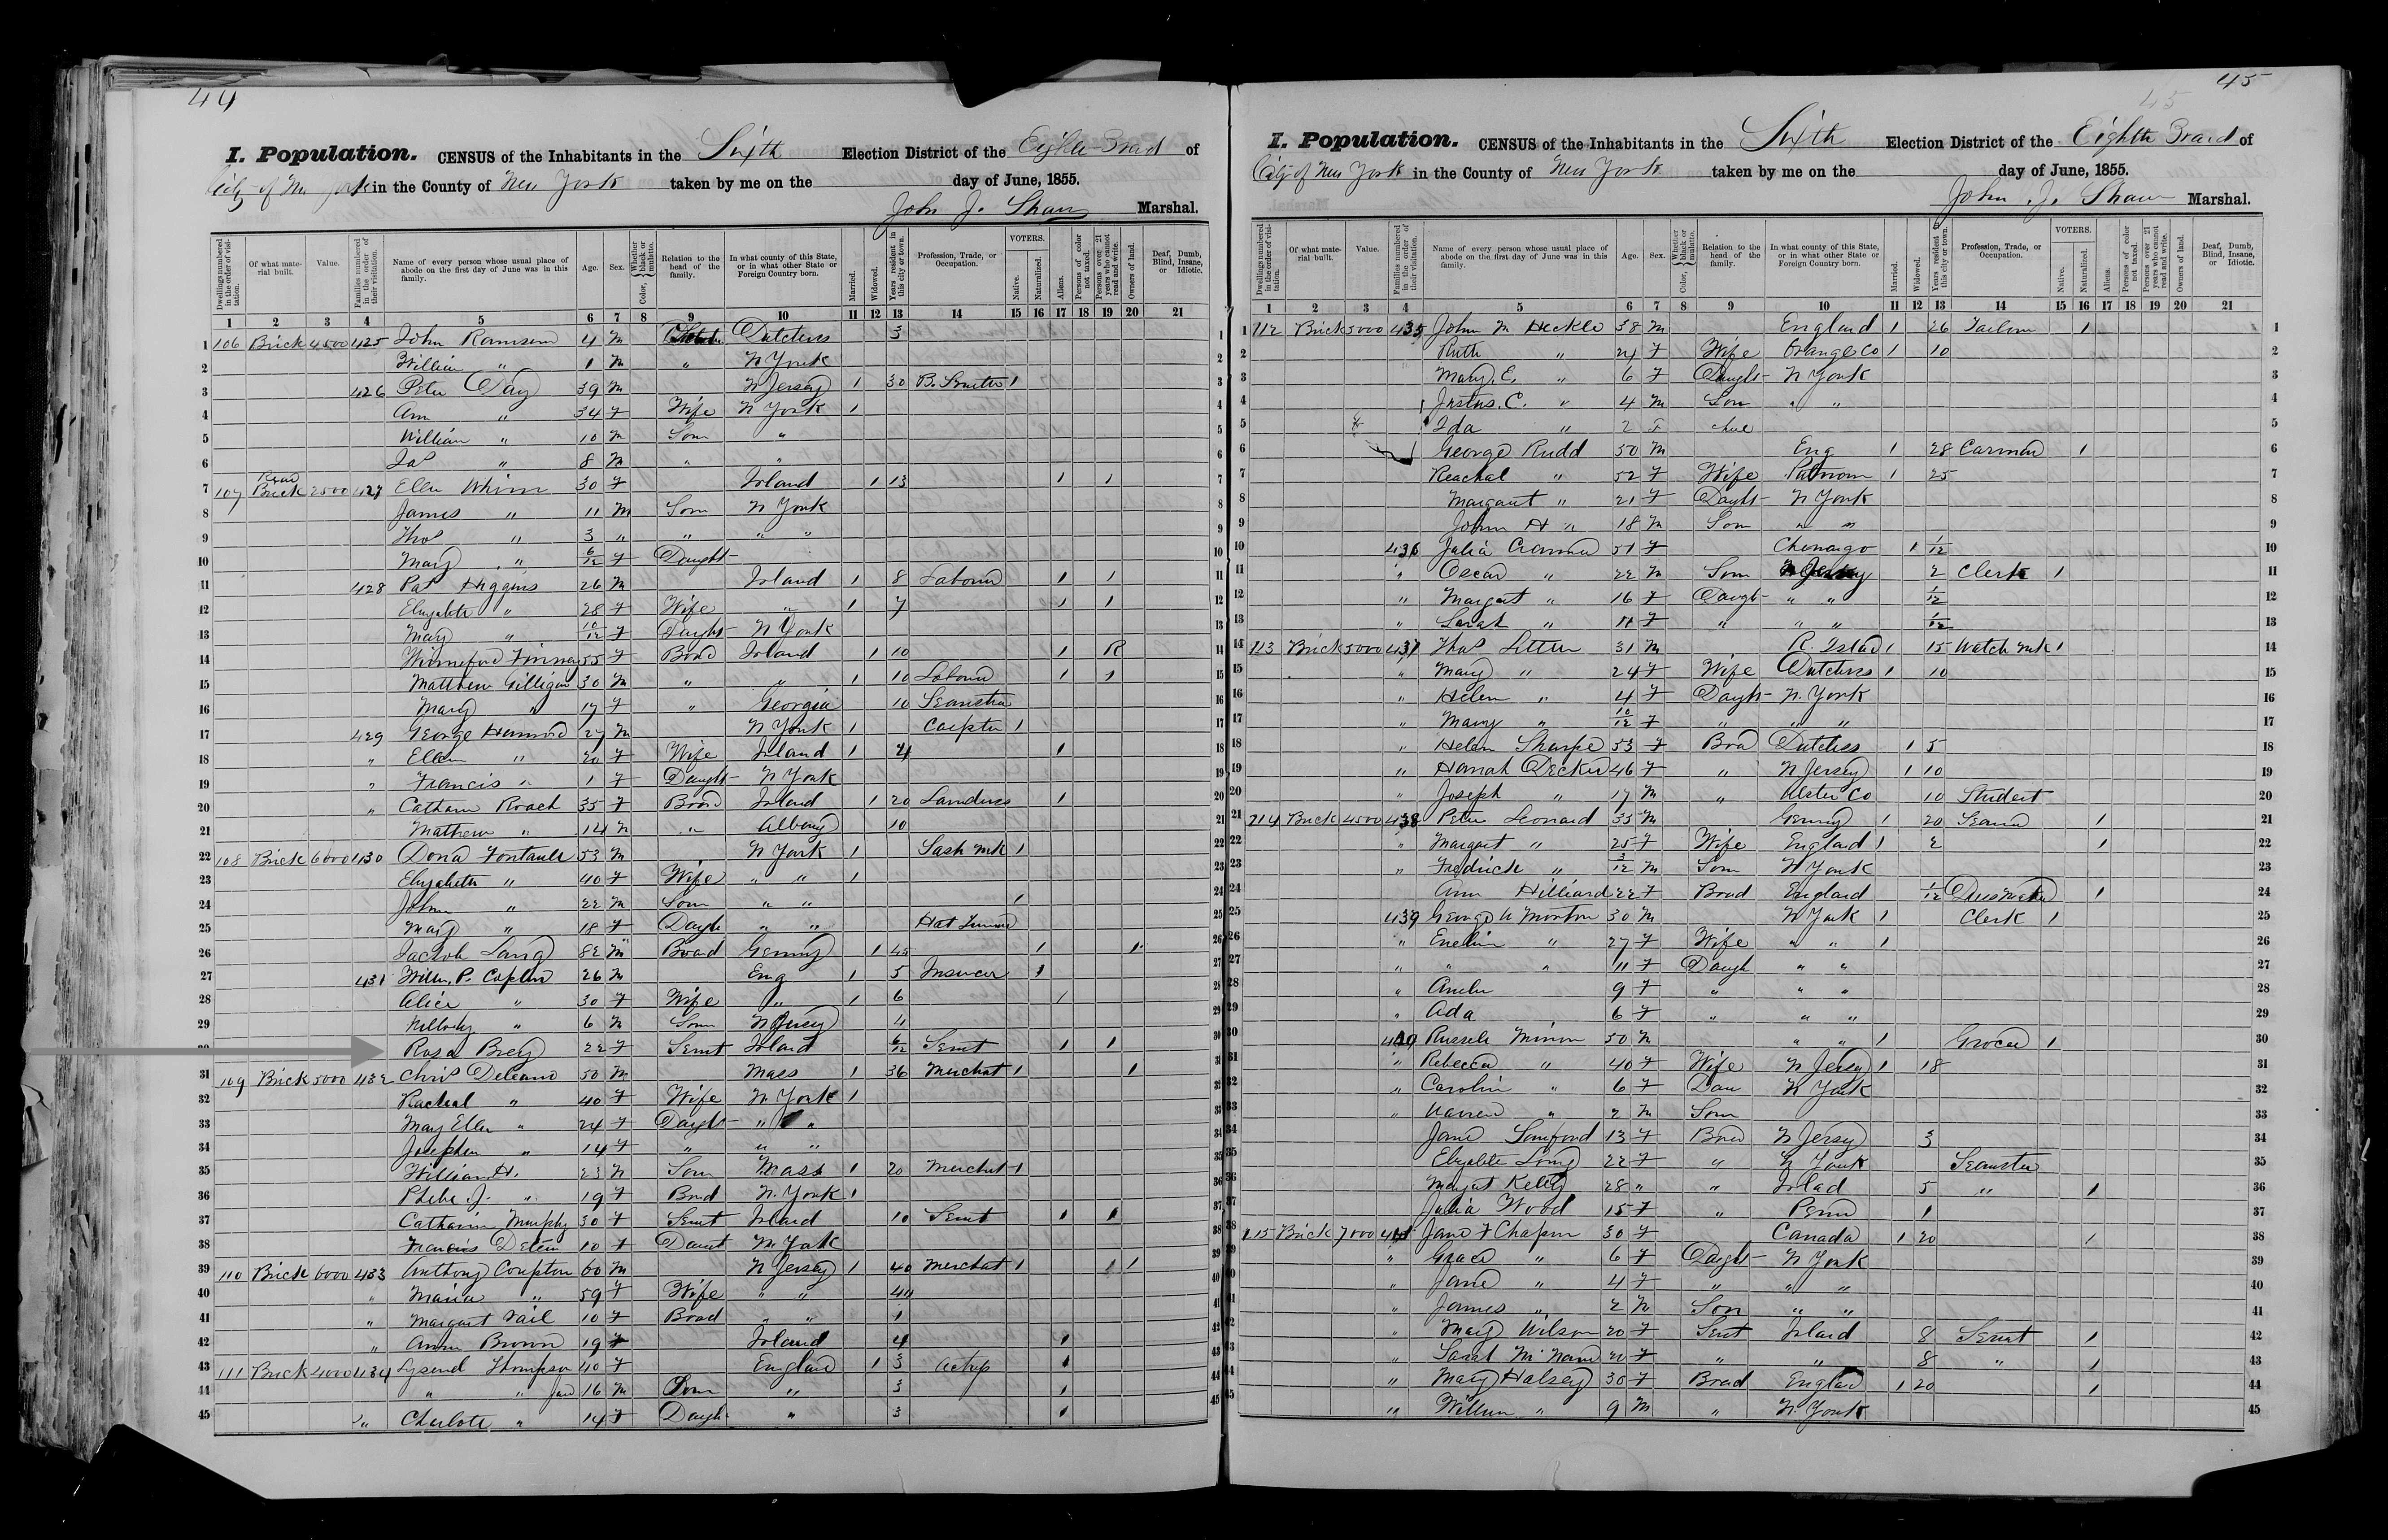 44
I. Population. CENSUS of the Inhabitants in the Sixth Election District of the Eighth Ward of
City of New York in the County of New York taken by me on the day of June, 1855.
John J. Shaw Marshal.
Dwellings numbered in the order of visitation.
Of what material built.
Value.
Families numbered in the order of their visitation.
Name of every person whose usual place of abode on the first day of June was in this family.
Age.
Sex.
Color, Whether black or mulatto.
Relation to the head of the family.
In what county of this State, or in what other State or Foreign Country born.
Married.
Widowed.
Years resident in this city or town.
Profession, Trade, or Occupation.
VOTERS.
Native.
Naturalized.
Aliens.
Persons of color not taxed.
Persons over 21 years who cannot read and write.
Owners of land.
Deaf, Dumb, Blind, Insane, or Idiotic.
1 2 3 4 5 6 7 8 9 10 11 12 13 14 15 16 17 18 19 20 21
1 106 Brick 4500 425 John 4 M Dutchess 3 1
2 William " 1 M " N York 2
3 426 Peter Day 39 M N Jersey 1 30 B. Smith 1 3
4 Ann " 34 F Wife N York 1 4
5 William " 10 M Son " 5
6 Jas " 8 M " " 6
7 107 Rear Brick 2500 427 Ellen 30 F Irland 1 13 1 1 7
8 James " 11 M Son N York 8
9 Thos " 3 " " " " 9
10 Mary " 6/12 F Daught 10
11 428 Pat Higgins 26 M Irland 1 8 Laborer 1 1 11
12 Elizabeth " 28 F Wife " 1 7 1 1 12
13 Mary " 10/12 F Daught N York 13
14 55 F Board Irland 1 10 1 R 14
15 Matthew Gilligan 30 M " " 1 10 Laborer 1 1 15
16 Mary " 17 F " Georgia 10 Seamstrs 16
17 429 George 27 M N York 1 Carpter 1 17
18 " Ellen " 20 F Wife Irland 1 4 1 18
19 " Francis " 1 F Daught N York 19
20 " Cathern Roach 35 F Board Irland 1 20 Landress 1 20
21 Mathew " 14 M " Albany 10 21
22 108 Brick 6000 430 53 M N York 1 Sash Mk 1 22
23 Elizabeth " 40 F Wife " " 1 23
24 John " 22 M Son " " 1 24
25 Mary " 18 F Daugh " " Hat 25
26 Jacob Lang 82 M Board Germny 1 45 1 1 26
27 431 Willm. P. 26 M Eng 1 5 1 27
28 Alice " 30 F Wife " 1 6 1 28
29 " 6 M Son N Jersey 4 29
Rosa 22 F Servt Irland 6/12 Servt 1 1 30
31 109 Brick 5000 432 Chris 50 M Mass 1 36 Merchat 1 1 31
32 Rachal " 40 F Wife N York 1 32
33 Mary Ellen " 24 F Daught " " 33
34 Josephen " 14 F " " " 34
35 William H. 23 M Son Mass 1 20 Merchat 1 35
36 Phebe J. " 19 F Bord N. York 1 36
37 Catharin Murphy 30 F Servt Irland 10 Servt 1 1 37
38 10 F N. York 38
39 110 Brick 6000 433 Anthony 60 M N Jersey 1 40 Merchat 1 1 1 39
40 " Maria " 59 F Wife " " 40
41 " Margart Vail 10 F Board " " 1 41
42 " Ann Brown 19 F Irland 4 1 42
43 111 Brick 4000 434 Thompson 40 F England 1 3 1 43
44 " " 16 M Son " 3 1 44
45 " Charlote " 14 F Daugh " 3 1 45
45
45
I. Population. CENSUS of the Inhabitants in the Sixth Election District of the Eighth Ward of
City of New York in the County of New York taken by me on the day of June, 1855.
John J. Shaw Marshal.
Dwellings numbered in the order of visitation.
Of what material built.
Value.
Families numbered in the order of their visitation.
Name of every person whose usual place of abode on the first day of June was in this family.
Age.
Sex.
Color, Whether black or mulatto.
Relation to the head of the family.
In what county of this State, or in what other State or Foreign Country born.
Married.
Widowed.
Years resident in this city or town.
Profession, Trade, or Occupation.
VOTERS.
Native.
Naturalized.
Aliens.
Persons of color not taxed.
Persons over 21 years who cannot read and write.
Owners of land.
Deaf, Dumb, Blind, Insane, or Idiotic.
1 2 3 4 5 6 7 8 9 10 11 12 13 14 15 16 17 18 19 20 21
1 112 Brick 5000 435 John M Heckle 38 M England 1 26 1 1
2 Ruth " F Wife Orange Co 1 10 2
3 Mary. E. " 6 F Daught N York 3
4 Justus. C. " 4 M Son " " 4
5 Ida " 2 F 5
6 George Rudd 50 M Eng 1 28 Carman 1 6
7 Reachal " 52 F Wife Putnam 1 25 7
8 Margaret " 21 F Daught N York 8
9 John H " 18 M Son " " 9
10 436 Julia 51 F Chenango 1 1/12 10
11 " Oscar " 22 M Son 2 Clerk 1 11
12 " Margart " 16 F Daught " " 1/12 12
13 " Sarah " 11 F " " " 1/12 13
14 113 Brick 5000 437 Thos 31 M R. Island 1 15 Watch Mk 1 14
15 " Mary " 24 F Wife Dutchess 1 10 15
16 " Helen " 4 F Daught N. York 16
17 " Mary " 10/12 F " " " 17
18 " Helen Sharpe 53 F Bord Dutchess 1 5 18
19 " Hanah Decker 46 F " N Jersey 1 10 19
20 " Joseph " 17 M " Ulster Co 10 Student 20
21 214 Brick 4500 438 Peter Leonard 35 M Germny 1 20 1 21
22 " Margart " 25 F Wife England 1 2 1 22
23 " Fredrick " 3/12 M Son N York 23
24 Ann Hilliard 22 F Board England 1/12 1 24
25 439 George W Morton 30 M N York 1 Clerk 1 25
26 " " 27 F Wife " " 1 26
27 " " " 11 F Daugh " " 27
28 " 9 F " " " 28
29 " Ada 6 F " " " 29
30 440 Russell 50 M " " 1 Grocer 1 30
31 " Rebecca " 40 F Wife N Jersey 1 18 31
32 " Carolin " 6 F Dau N York 32
33 " Warren " 2 M Son 33
34 Jane 13 F Bord N Jersy 3 34
35 Elizabete Long 22 F " N York Seamster 35
36 Margart Kelly 28 " " Irlad 5 " 1 36
37 Julia Wood 15 F " Penn 1 37
38 115 Brick 7000 441 Jane F Chapin 30 F Canada 1 20 1 38
39 " Grace " 6 F Daught N York 39
40 " Jane " 4 F " " " 40
41 " James " 2 M Son " " 41
42 " Mary Wilson 20 F Servt Irland 8 Servat 1 42
43 " Sarah F " " 8 " 1 43
44 " Mary Halsey 30 F Brad England 1 20 1 44
45 " Willium " 9 M " N. York 45